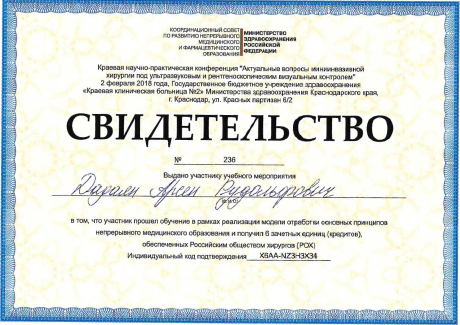 КООРДИНАЦИОННЫЙ СОВЕТ
ПО РАЗВИТИЮ НЕПРЕРЫВНОГО
МЕДИЦИНСКОГО
И ФАРМАЦЕВТИЧЕСКОГО
ОБРАЗОВАНИЯ
МИНИСТЕРСТВО
ЗДРАВООХРАНЕНИЯ
РОССИЙСКОЙ
ФЕДЕРАЦИИ
Краевая научно-практическая конференция "Актуальные вопросы миниинвазивной
хирургии под ультразвуковым и рентгеноскопическим визуальным контролем"
2 февраля 2018 года, Государственное бюджетное учреждение здравоохранения
«Краевая клиническая больница №2» Министерства здравоохранения Краснодарского края,
г. Краснодар, ул. Красных партизан 6/2
СВИДЕТЕЛЬСТВО
№ 236
Выдано участнику учебного мероприятия
Арсен Рудольфович
(Ф.И.О)
в том, что участник прошел обучение в рамках реализации модели отработки основных принципов
непрерывного медицинского образования и получил 6 зачетных единиц (кредитов),
обеспеченных Российским обществом хирургов (РОХ)
Индивидуальный код подтверждения X6AA-NZ3H3X34